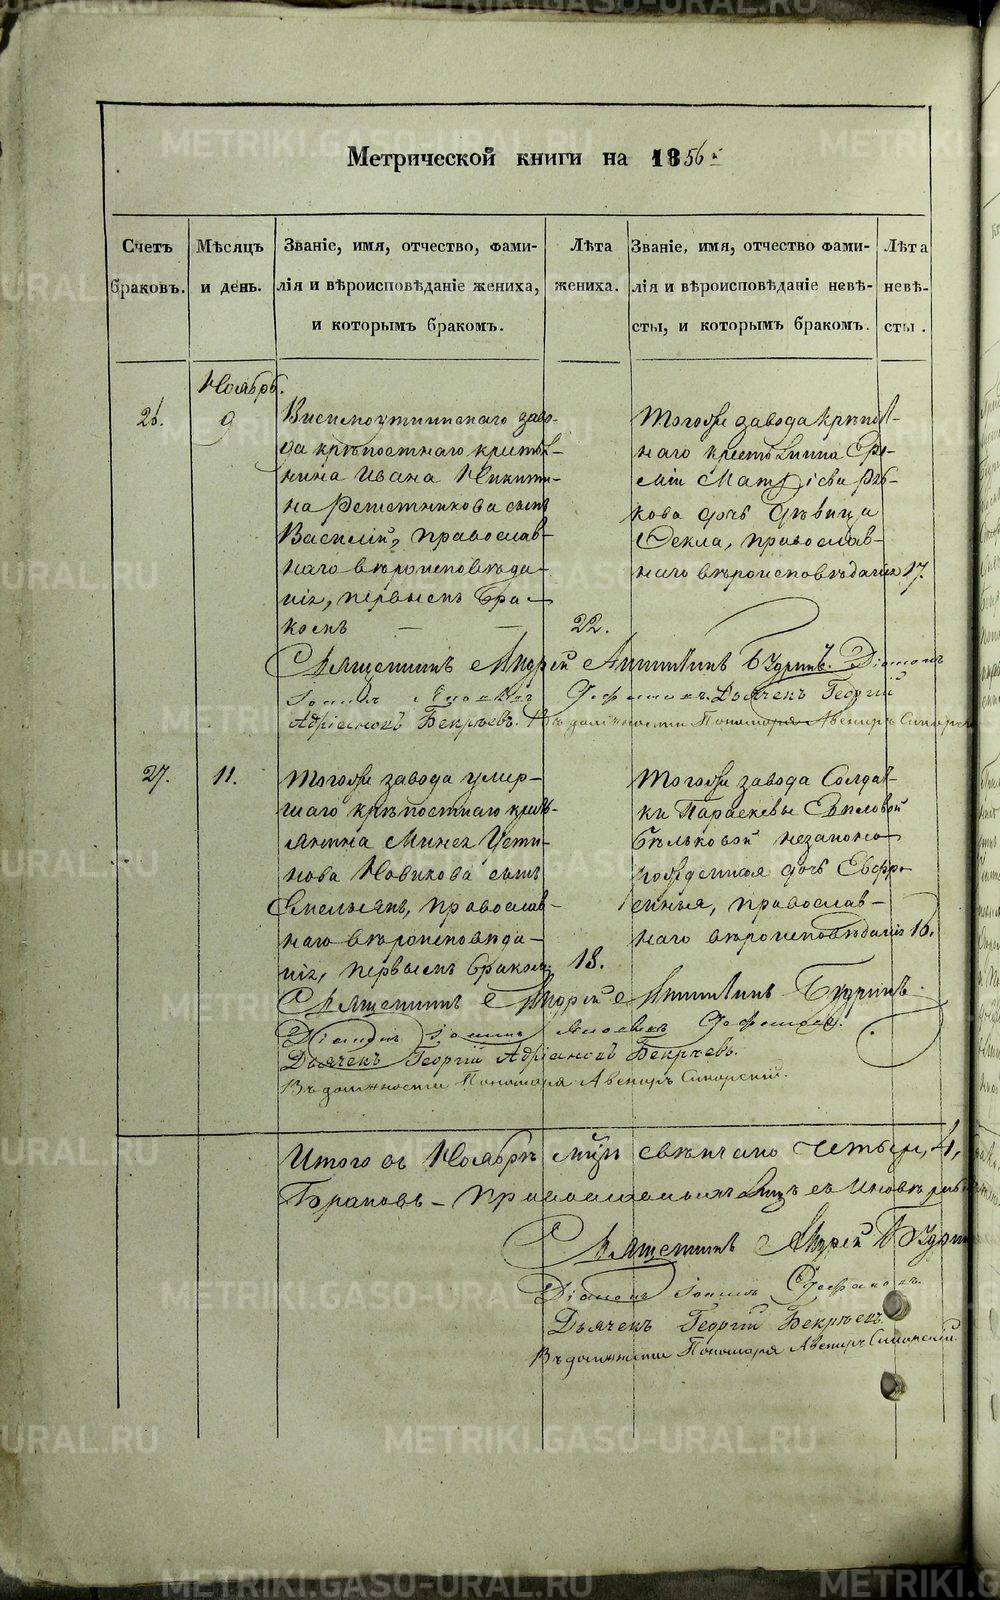 Метрической книги на 1856 г.
Счетъ браковъ.
Мѣсяцъ и день.
Званіе, имя, отчество, фами-
лія и вѣроисповѣданіе жениха,
и которымъ бракомъ.
Лѣта жениха.
Званіе, имя, отчество фами-
лія и вѣроисповѣданіе невѣ-
сты, и которымъ бракомъ.
Лѣта невѣ-
сты.
Ноябрь.
26.
9
Висимоуткинскаго заво-
да крѣпостнаго крестья-
нина Ивана Никити-
на Решетникова сынъ
Василій, православ-
наго вѣроисповѣда-
нія, первымъ бра-
комъ
22.
Тогоже завода крѣпост-
наго крестьянина
кова дочь дѣвица
Ѳекла, православ-
наго вѣроисповѣданія
17.
Священникъ Андрей Будринъ. Діаконъ
Іоаннъ Дьячекъ Георгій
Адріановъ Бекрѣевъ. Въ должности Пономаря Авениръ
27.
11.
Тогоже завода умер-
шаго крѣпостнаго крест-
янина Мины Усти-
нова Новикова сынъ
Емельянъ, православ-
наго вѣроисповѣда-
нія, первымъ бракомъ
18.
Тогоже завода Солдат-
ки Параскевы
Бѣльковой незаконо-
рожденная дочь Евфро-
синья, православ-
наго вѣроисповѣданія
16.
Священникъ Андрей Будринъ.
Діаконъ Іоаннъ
Дьячекъ Георгій Адріановъ Бекрѣевъ.
Въ должности Пономаря Авениръ
Итого въ Ноябрѣ м-цѣ свѣнчано четыре, 4,
браковъ
Священникъ Андрей Будринъ
Діаконъ Іоаннъ
Дьячекъ Георгій Бекрѣевъ
Въ должности Пономаря Авениръ
METRIKI.GASO-URAL.RU